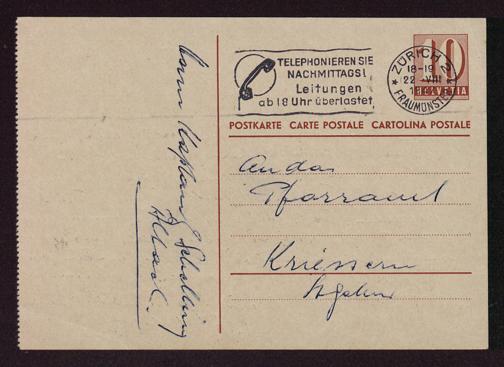 TELEPHONIEREN SIE
NACHMITTAGS!
Leitungen
ab 18 Uhr überlastet
10
HELVETIA
ZÜRICH 2
18-19
22. VIII
FRAUMÜNSTER
POSTKARTE CARTE POSTALE CARTOLINA POSTALE
An das
Pfarramt
Kriessern
St. Gallen
Kaplan Schelling